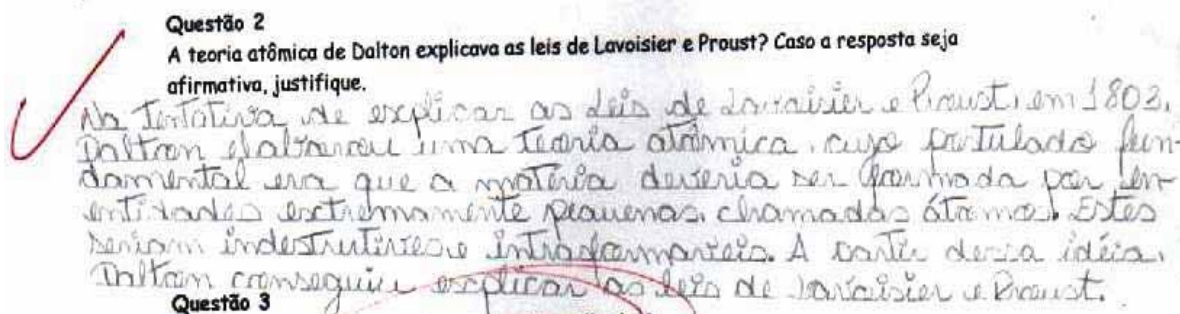 Questão 2
A teoria atômica de Dalton explicava as leis de Lavoisier e Proust? Caso a resposta seja
afirmativa, justifique.
Na Tentativa de explicar as Leis de Lavaisier e Proust, em 1803,
Daltron elaborou uma Teoria atômica, cujo postulado fun-
damental era que a matéria deveria ser formada por en-
entidades extremamente pequenas, chamadas átomos. Estes
seriam indestrutíveis e intrasformáveis. A partir dessa idéia,
Daltron conseguiu explicar as leis de Lavaisier e Proust.
Questão 3